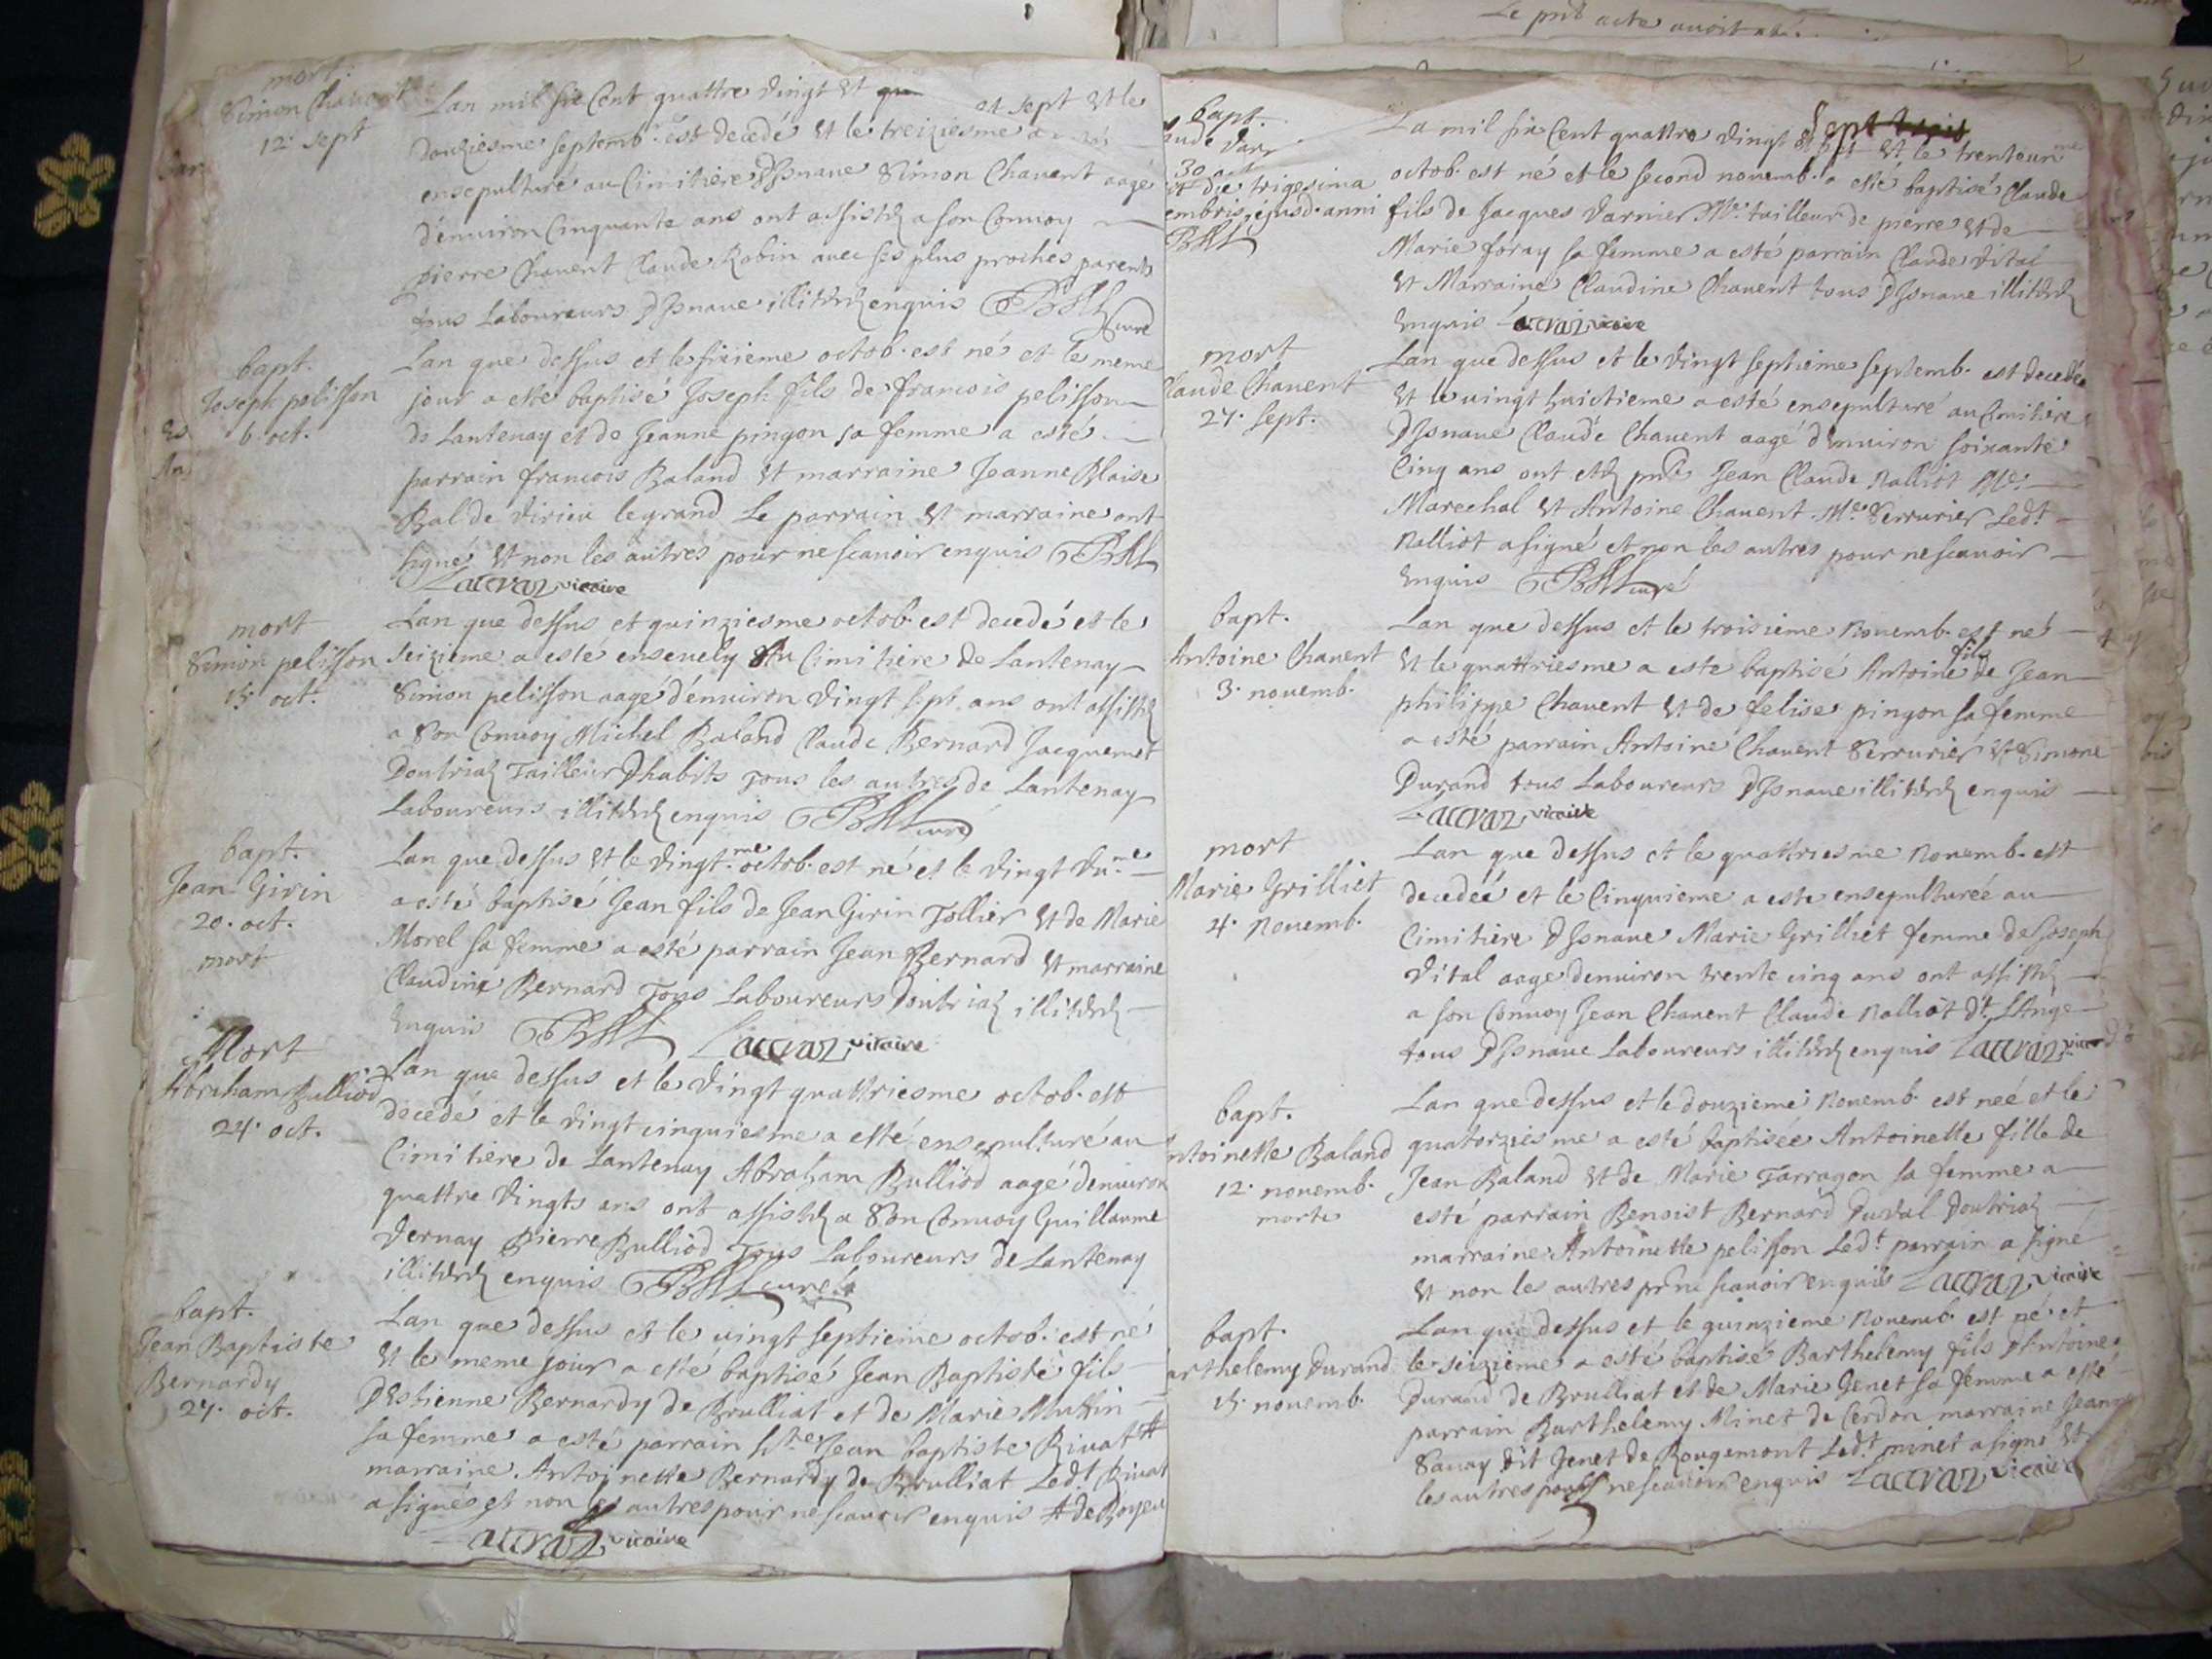 mort.
Simon Chauent
12. sept
Lan mil six Cent quattre vingt et et sept et le
douziesme septemb. est decedé et le treiziesme a
ensepulturé au Cimitiere DJsnaue Simon Chauent aagé
d'enuiron Cinquante ans ont assistez a son Conuoy
pierre Chauent Claude Robin auec ses plus proches parents
tous Laboureurs DJsnaue illiterez enquis
curé
bapt.
Joseph pelisson
6. oct.
Lan que dessus et le sixieme octob. est né et le meme
jour a esté baptisé Joseph fils de francois pelisson
de Lantenay et de Jeanne pingon sa femme a esté
parrain francois Baland et marraine Jeanne Blaise
Bal de virieu legrand Le parrain et marraine ont
signé et non les autres pour ne scauoir enquis
Laccraz vicaire
mort
Simon pelisson
15. oct.
Lan que dessus et quinziesme octob. est decedé et le
seizieme a esté enseuely Au Cimitiere de Lantenay
Simon pelisson aagé d'enuiron vingt sept ans ont assistez
a son Conuoy Michel Baland Claude Bernard Jacquemet
Doutriaz Tailleur Dhabits Tous les autres de Lantenay
Laboureurs illiterez enquis curé
bapt.
Jean Girin
20. oct.
mort
Lan que dessus et le vingt.me octob. est né et le vingt vn.me
a esté baptisé Jean fils de Jean Girin Tollier et de Marie
Morel sa femme a esté parrain Jean Bernard et marraine
Claudine Bernard Tous Laboureurs Doutriaz illiterez
enquis Laccraz vicaire
Mort
Abraham Bulliod
24. oct.
Lan que dessus et le vingt quattriesme octob. est
decedé et le vingt cinquiesme a esté ensepulturé au
Cimitiere de Lantenay Abraham Bulliod aagé denuiron
quattre vingts ans ont assistez a Son Conuoy Guillaume
Vernay Pierre Bulliod Tous Laboureurs de Lantenay
illiterez enquis curé
bapt.
Jean Baptiste
Bernardy
27. oct.
Lan que dessus et le uingt septieme octob. est né
et le meme jour a esté baptisé Jean Baptiste fils
DEstienne Bernardy de Brulliat et de Marie Muttin
sa femme a esté parrain Jean baptiste Riuat #
marraine Antoinette Bernardy de Brulliat Led.t Riuat
a signés et non les autres pour ne scauoir enquis # de Royeu
Laccraz vicaire
Le acte auoit
bapt.
30 oct
die trigesima
embris ejusd. anni
La mil six Cent quattre vingt et sept et le trenteun.me
octob. est né et le second nouemb. a esté baptisé Claude
fils de Jacques Varnier M.e tailleur de pierre et de
Marie foray sa femme a esté parrain Claude Vital
et Marraine Claudine Chauent tous DJsnaue illiterez
enquis Laccraz vicaire
mort
laude Chauent
27. sept.
Lan que dessus et le vingt septieme septemb. est decedée
et le uingt huictieme a esté ensepulturé au Cimitiere
DJsnaue Claude Chauent aagé d'enuiron soixante
Cinq ans ont estez pnts Jean Claude Nalliot M.e
Marechal et Antoine Chauent M.e Serrurier Led.t
Nalliot a signé et non les autres pour ne scauoir
enquis curé
bapt.
Antoine Chauent
3. nouemb.
Lan que dessus et le troisieme Nouemb. est né
et le quattriesme a este baptisé Antoine fils de Jean
philippe Chauent et de felise pingon sa femme
a esté parrain Antoine Chauent Serrurier et Simone
Durand tous Laboureurs DJsnaue illiterez enquis
Laccraz vicaire
mort
Marie Grilliet
4. Nouemb.
Lan que dessus et le quattriesme Nouemb. est
decedeé et le Cinquieme a este ensepultureé au
Cimitiere DJsnaue Marie Grilliet femme de Joseph
Vital aage denuiron trente cinq ans ont assistez
a son Conuoy Jean Chauent Claude Nalliot d.t LAnge
tous DJsnaue Laboureurs illiterez enquis Laccraz
bapt.
ntoinette Baland
12. nouemb.
morte
Lan que dessus et le douzieme Nouemb. est neé et le
quatorziesme a esté baptisée Antoinette fille de
Jean Baland et de Marie Tarragon sa femme a
esté parrain Benoist Bernard Duval Doutriaz
marraine Antoinette pelisson Led.t parrain a signé
et non les autres pr ne scauoir enquis Laccraz vicaire
bapt.
arthelemy Durand
15. nouemb.
Lan que dessus et le quinzieme Nouemb. est né et
le seizieme a esté baptisé Barthelemy fils DAntoine
Durand de Brulliat et de Marie Genet sa femme a esté
parrain Barthelemy Minet de Cerdon marraine Jeanne
Sauay dit Genet de Rougemont Led.t minet a signé et
les autres pour ne scauoir enquis Laccraz vicaire